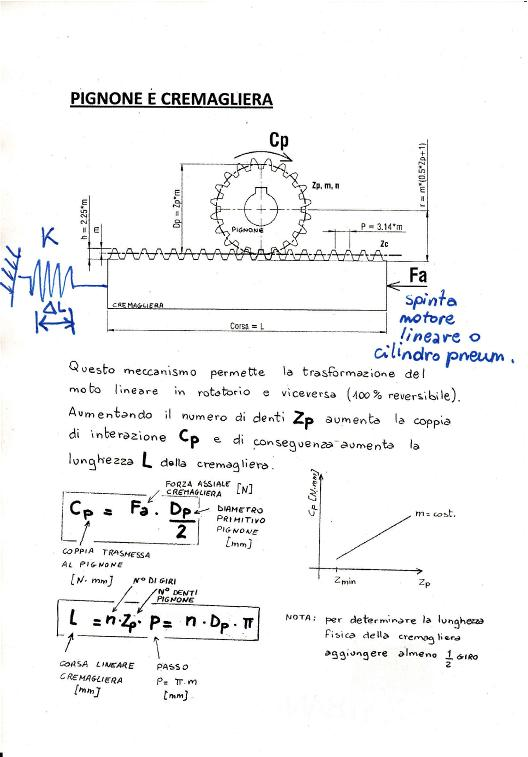 PIGNONE E CREMAGLIERA
Cp
Zp, m, n
Dp = Zp*m
PIGNONE
r = m*(0.5*Zp+1)
h = 2.25*m
m
P = 3.14*m
Zc
K
ΔL
Fa
CREMAGLIERA
Corsa = L
spinta
motore
lineare o
cilindro pneum.
Questo meccanismo permette la trasformazione del
moto lineare in rotatorio e viceversa (100% reversibile).
Aumentando il numero di denti Zp aumenta la coppia
di interazione Cp e di conseguenza aumenta la
lunghezza L della cremagliera.
FORZA ASSIALE
CREMAGLIERA [N]
Cp = Fa · Dp/2
DIAMETRO
PRIMITIVO
PIGNONE
[mm]
COPPIA TRASMESSA
AL PIGNONE
[N·mm]
Cp [N·mm]
m = cost.
Zmin
Zp
N° DI GIRI
N° DENTI
PIGNONE
L = n·Zp·P = n·Dp·π
CORSA LINEARE
CREMAGLIERA
[mm]
PASSO
P= π·m
[mm]
NOTA: per determinare la lunghezza
fisica della cremagliera
aggiungere almeno 1/2 GIRO